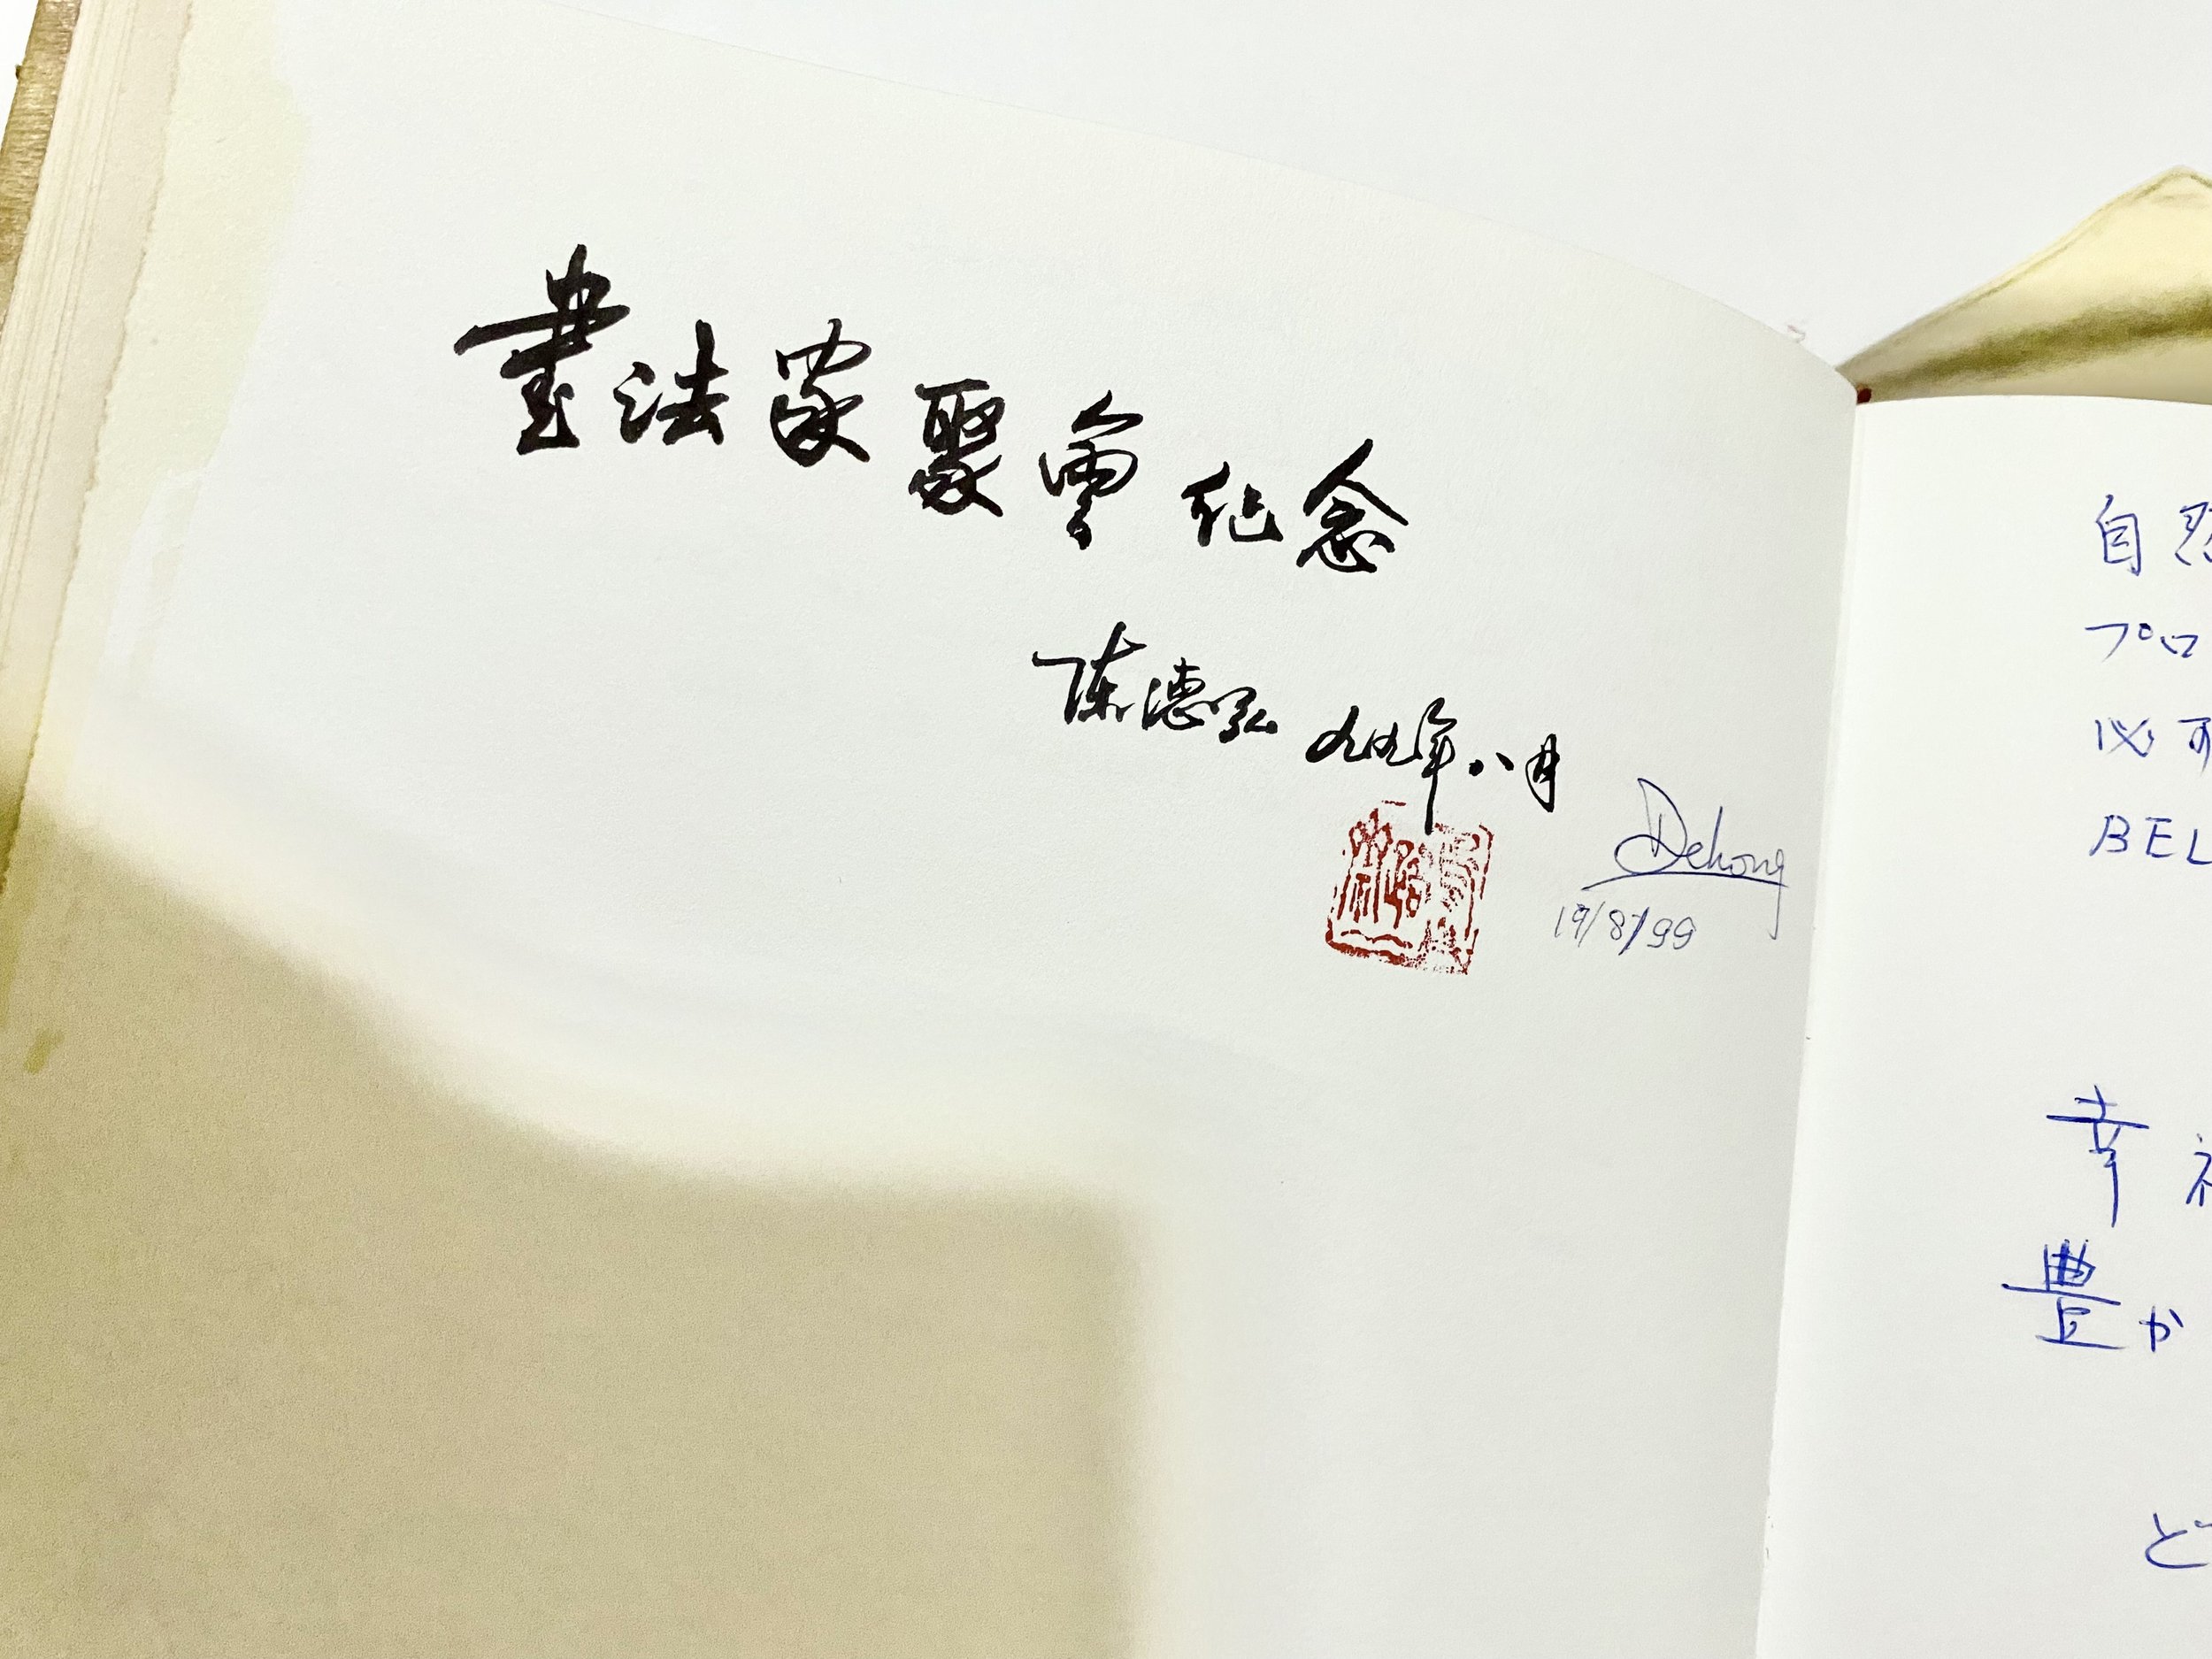 書法家聚會纪念
陈德弘 九九年八月
Dehong
19/8/99
自然
プロ
必可
BEL
幸福
豊か
と